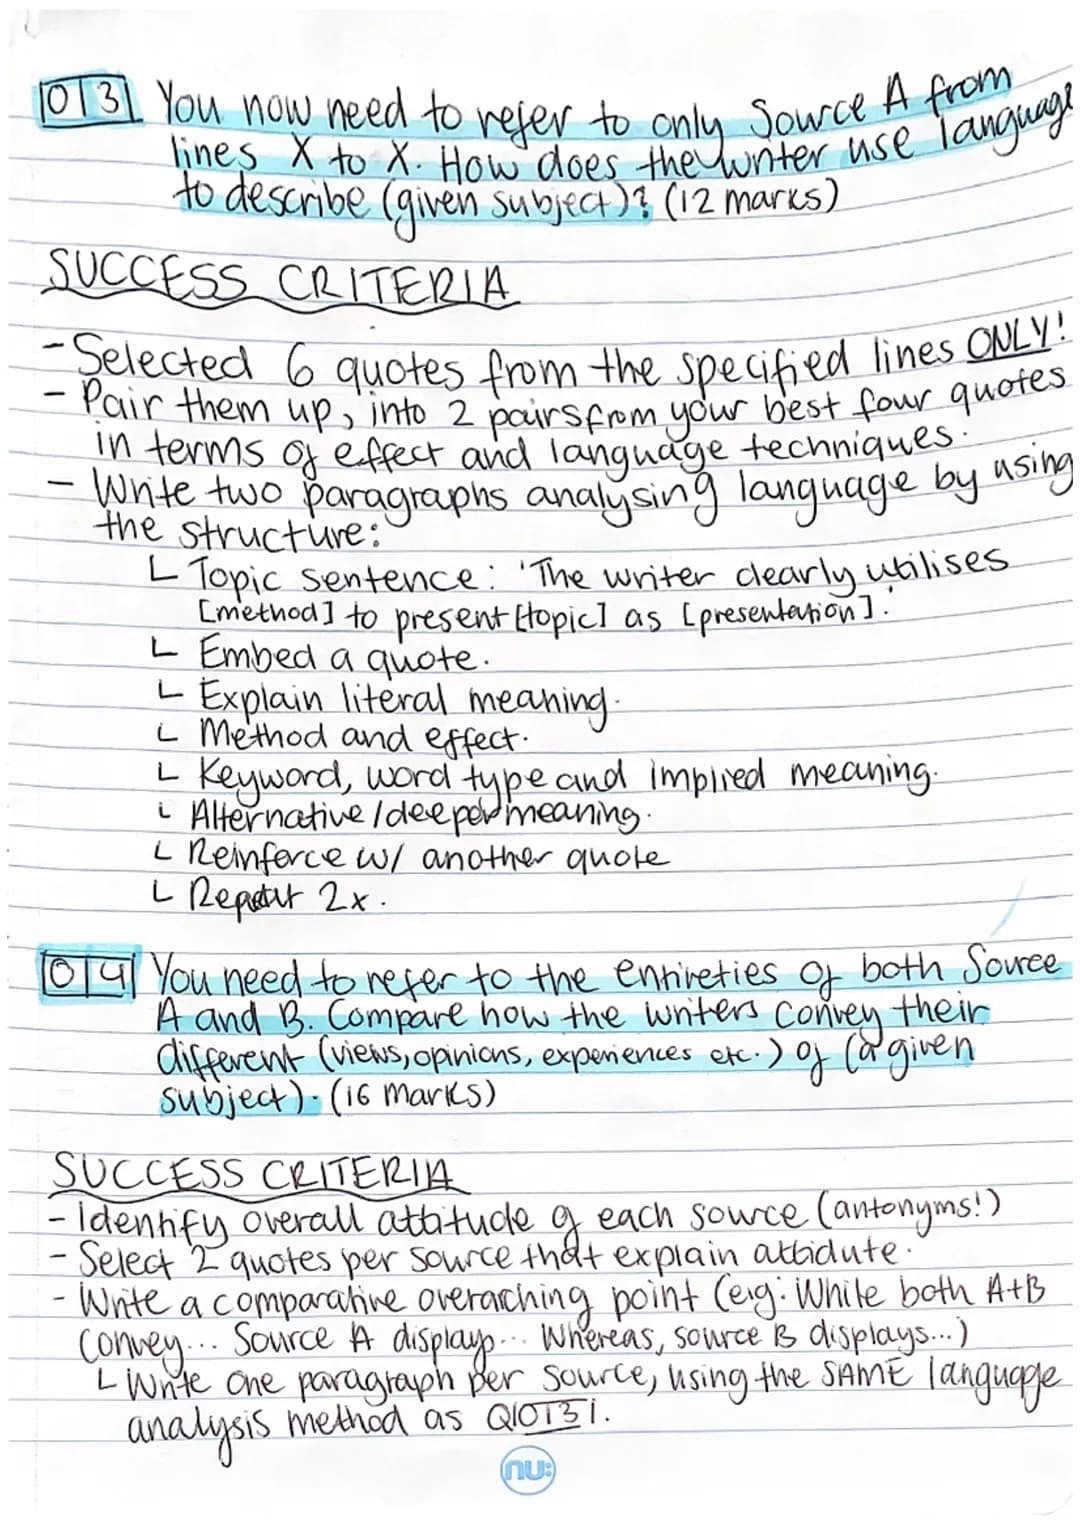 03 You now need to refer to only Source A from
lines X to X. How does the writer use language
to describe (given subject)? (12 marks)
SUCCESS CRITERIA
- Selected 6 quotes from the specified lines ONLY!
- Pair them up, into 2 pairs from your best four quotes
in terms of effect and language techniques.
- Write two paragraphs analysing language by using
the structure:
L Topic sentence: 'The writer clearly utilises
[method] to present [topic] as [presentation].'
L Embed a quote.
L Explain literal meaning.
L Method and effect.
L Keyword, word type and implied meaning.
L Alternative/deeper meaning.
L Reinforce w/ another quote
L Repeat 2x.
04 You need to refer to the entireties of both Source
A and B. Compare how the writers convey their
different (views, opinions, experiences etc.) of (a given
subject). (16 marks)
SUCCESS CRITERIA
- Identify overall attitude of each source (antonyms!)
- Select 2 quotes per source that explain attidute.
- Write a comparative overarching point (eg: While both A+B
convey... Source A displays... Whereas, source B displays...)
L Write one paragraph per source, using the SAME language
analysis method as Q03.
nu: